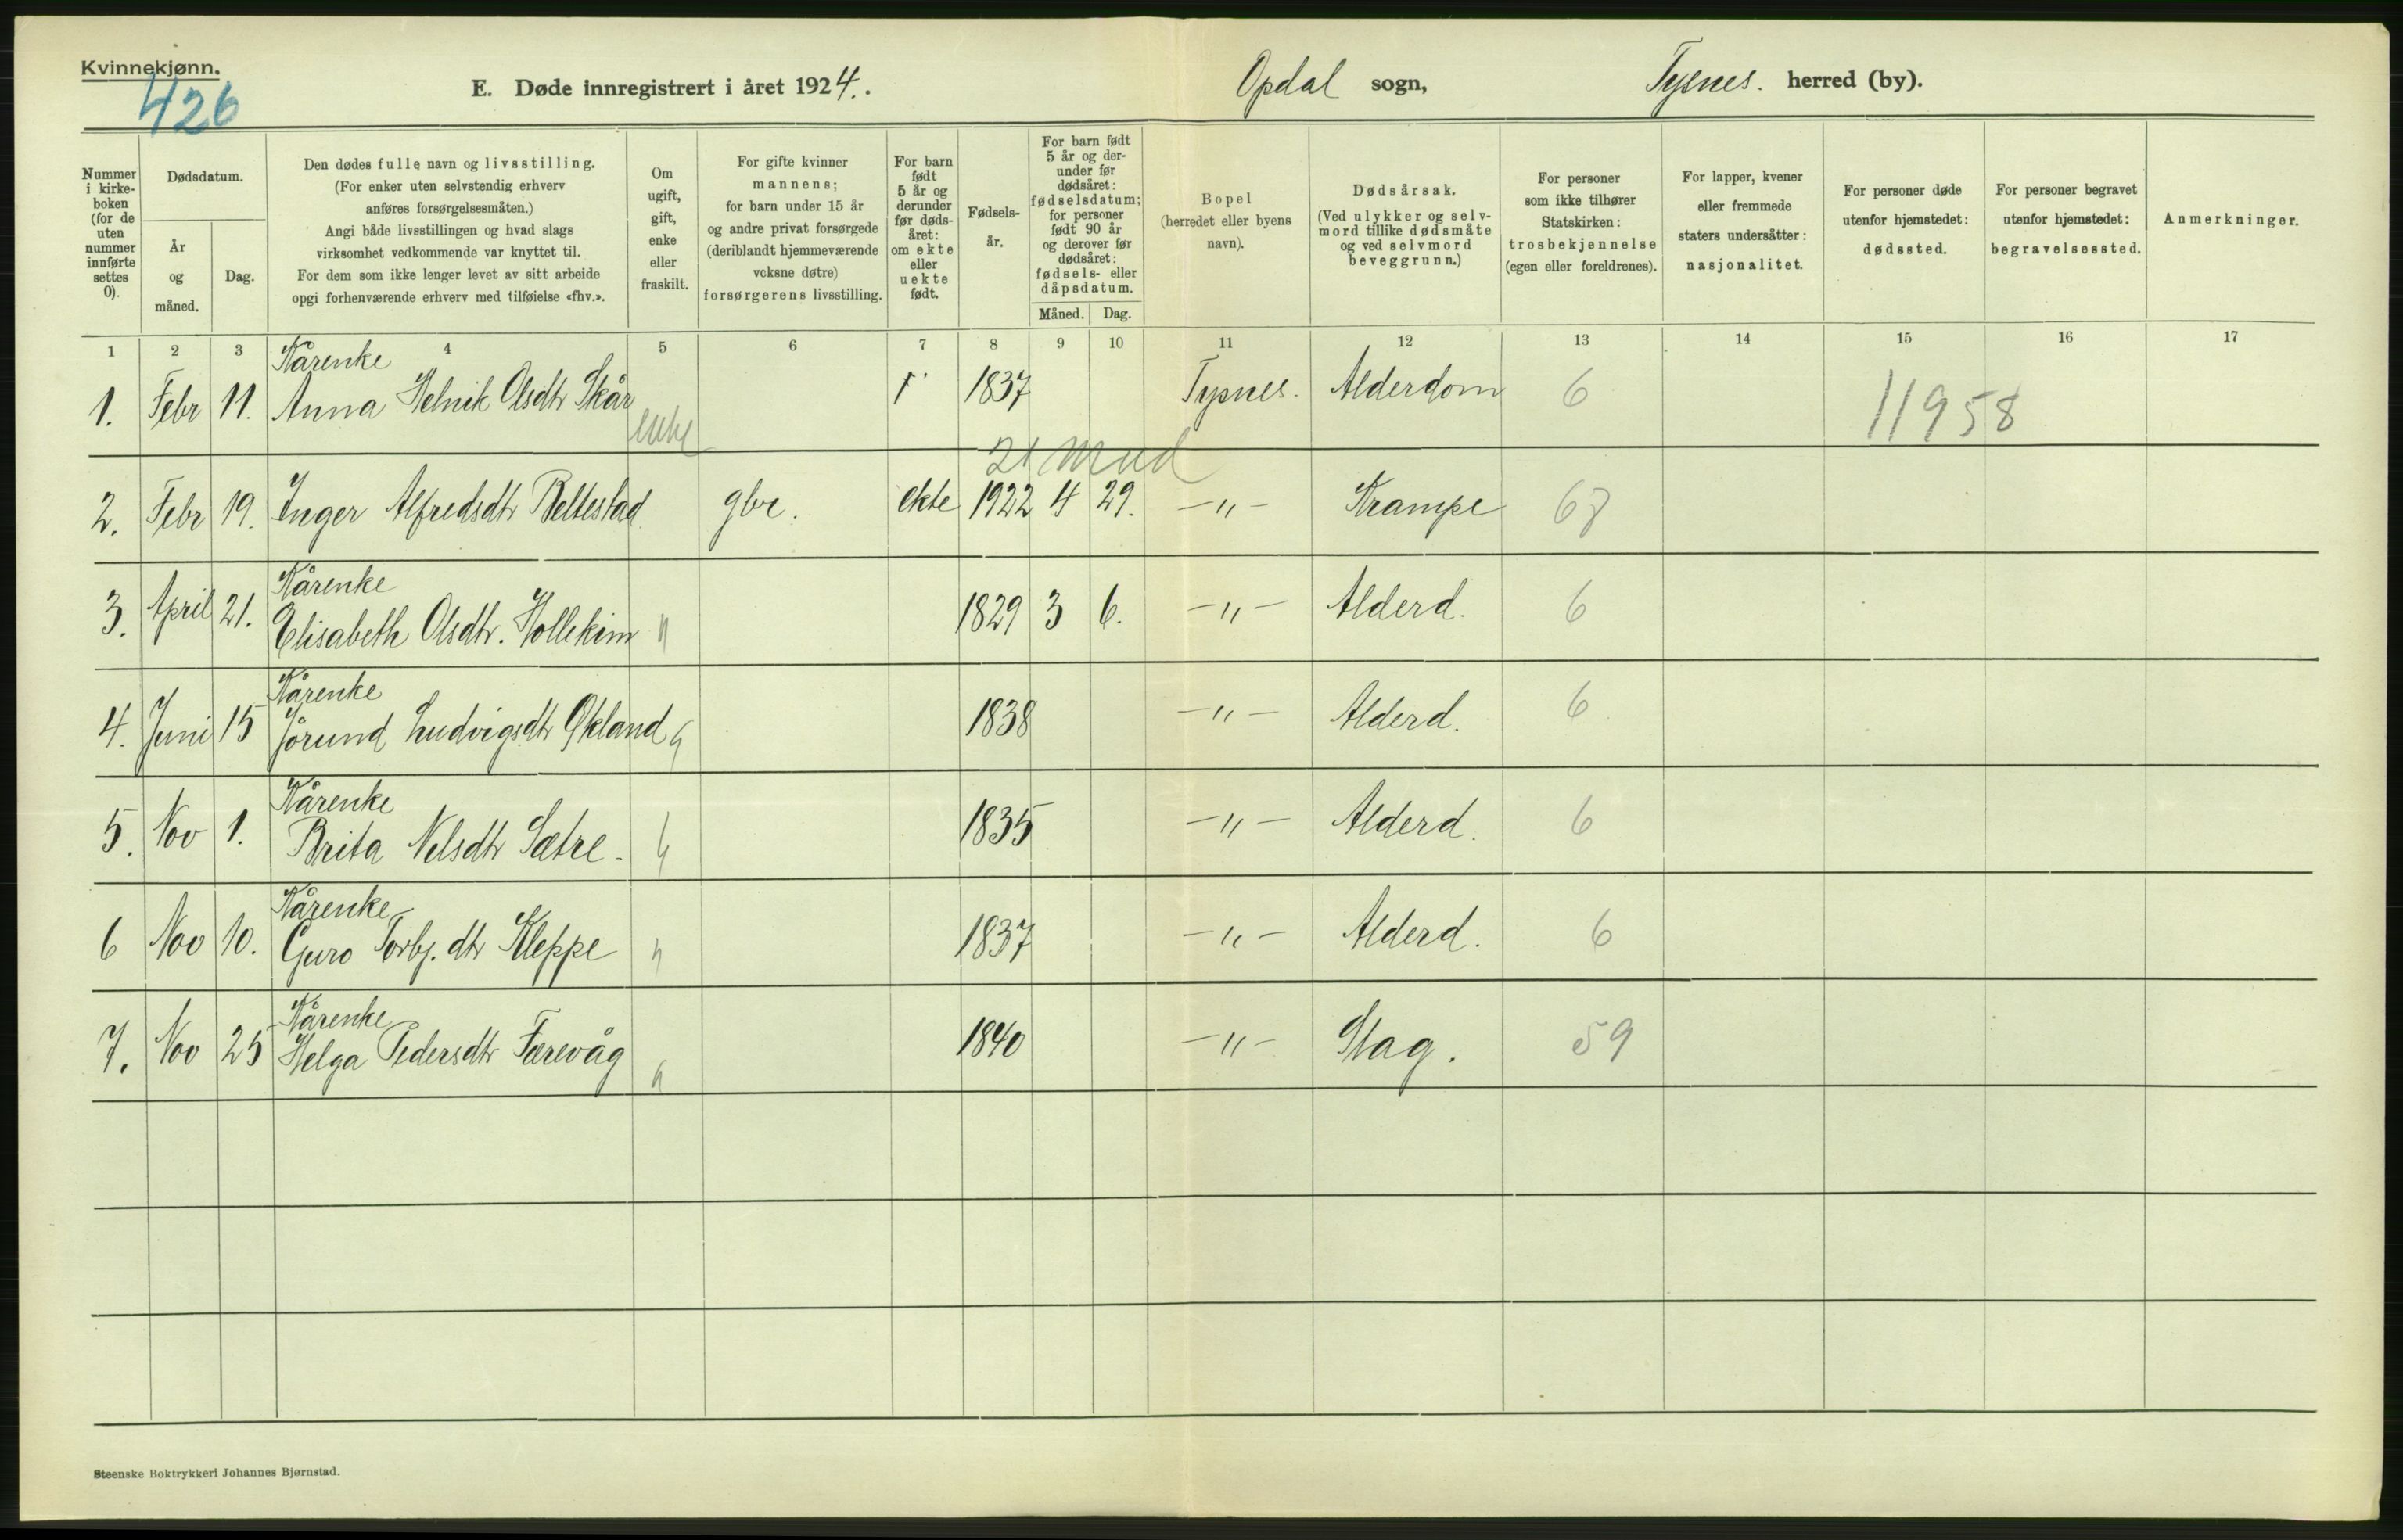 Kvinnekjønn.
426
E. Døde innregistrert i året 1924. .
Opdal sogn,
Tysnes. herred (by).
Nummer
i kirke-
boken
(for de
uten
nummer
innførte
settes
0).
Dødsdatum.
År
og
måned.
Dag.
Den dødes fulle navn og livsstilling.
(For enker uten selvstendig erhverv
anføres forsørgelsesmåten.)
Angi både livsstillingen og hvad slags
virksomhet vedkommende var knyttet til.
For dem som ikke lenger levet av sitt arbeide
opgi forhenværende erhverv med tilføielse «fhv.».
Om
ugift,
gift,
enke
eller
fraskilt.
For gifte kvinner
mannens;
for barn under 15 år
og andre privat forsørgede
(deriblandt hjemmeværende
voksne døtre)
forsørgerens livsstilling.
For barn
født
5 år og
derunder
før døds-
året:
om ekte
eller
uekte
født.
Fødsels-
år.
For barn født
5 år og der-
under før
dødsåret:
fødselsdatum;
for personer
født 90 år
og derover før
dødsåret:
fødsels- eller
dåpsdatum.
Måned. Dag.
Bopel
(herredet eller byens
navn).
Dødsårsak.
(Ved ulykker og selv-
mord tillike dødsmåte
og ved selvmord
beveggrunn.)
For personer
som ikke tilhører
Statskirken:
trosbekjennelse
(egen eller foreldrenes).
For lapper, kvener
eller fremmede
staters undersåtter:
nasjonalitet.
For personer døde
utenfor hjemstedet:
dødssted.
For personer begravet
utenfor hjemstedet:
begravelsessted.
Anmerkninger.
1 2 3 4 5 6 7 8 9 10 11 12 13 14 15 16 17
Kårenke
1. Febr 11. Anna Helnik Olsdtr Skår enke 1837 Tysnes. Alderdom 6 11958
21 mnd
2. Febr 19. Inger Alfredsdtr Beltestad gbr. ekte 1922 4 29. —"— Krampe 67
Kårenke
3. April 21. Elisabeth Olsdtr. Hollekim " 1829 3 6. —"— Alderd. 6
Kårenke
4. Juni 15 Jörund Ludvigsdtr Økland " 1838 —"— Alderd. 6
Kårenke
5. Nov 1. Brita Nelsdtr Sætre - " 1835 —"— Alderd. 6
Kårenke
6 Nov 10. Guro Torbj. dtr Kleppe " 1837 —"— Alderd. 6
Kårenke
7. Nov 25 Helga Pedersdtr Færevåg " 1840 —"— Slag. 59
Steenske Boktrykkeri Johannes Bjørnstad.